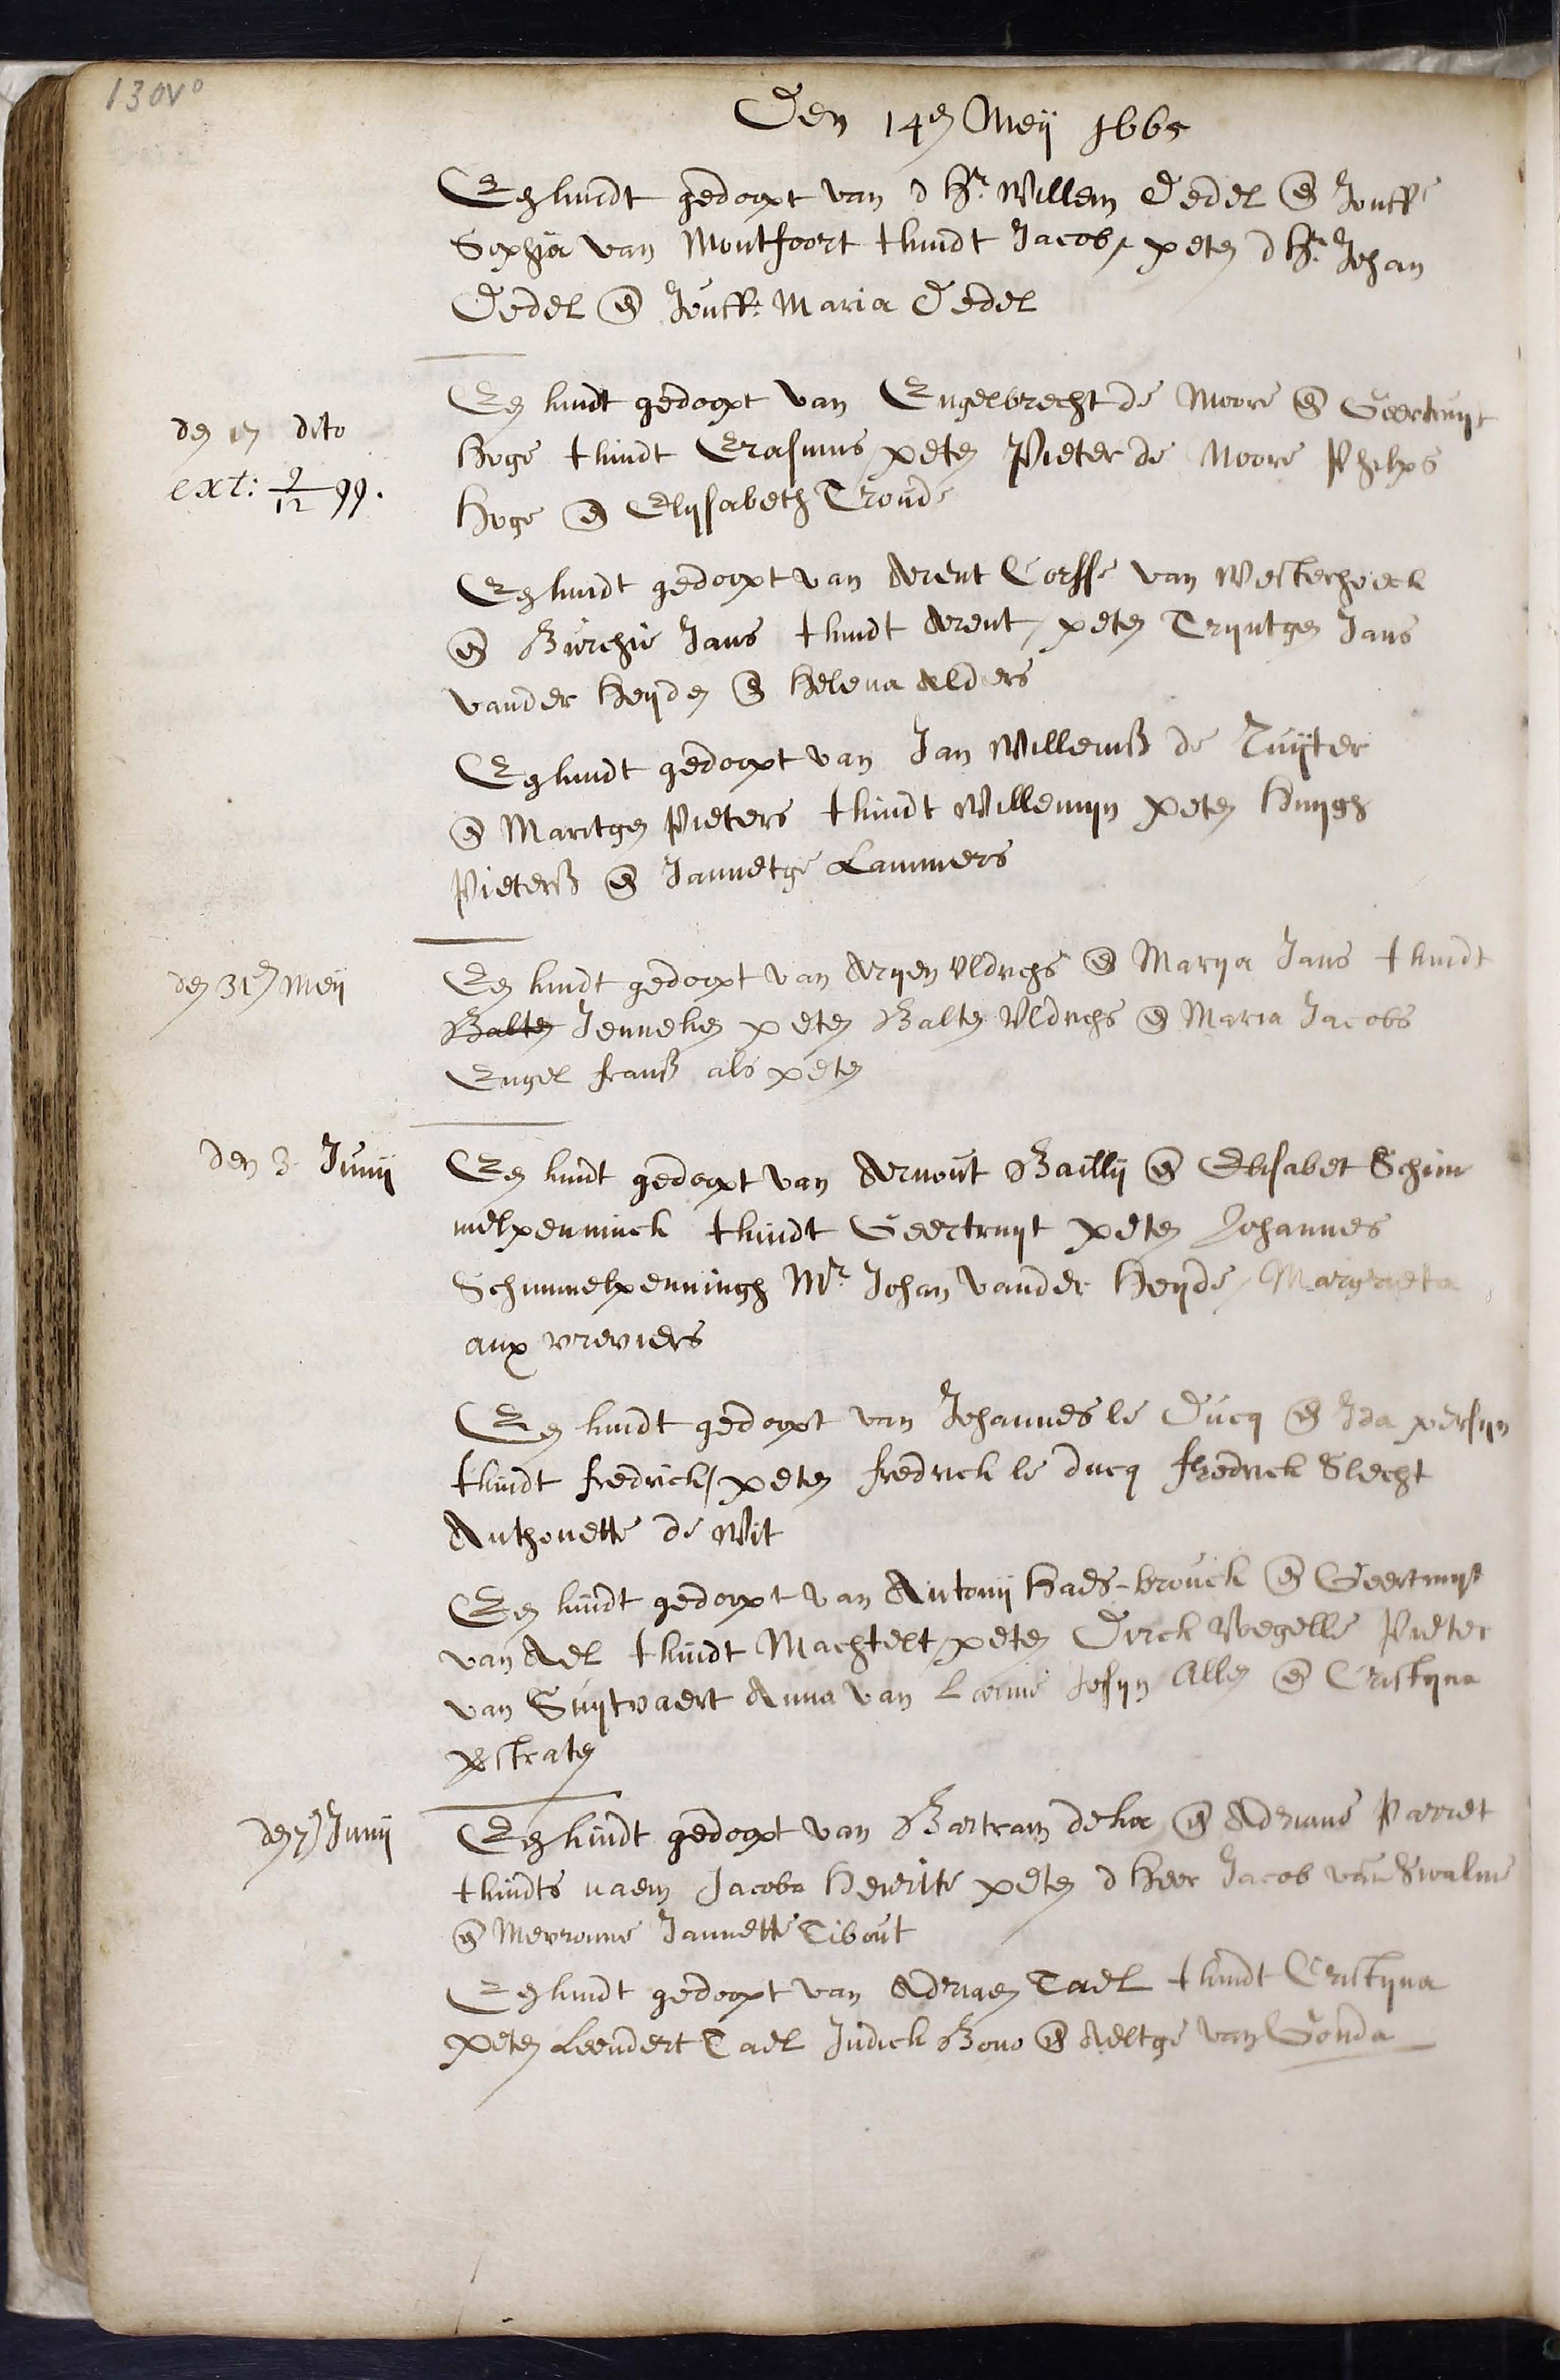 130vo
Den 14en Meij 1665
Een kindt gedoopt van d Hr. Willem Dedel en Jouffe
Sophia van Montfoort tkindt Jacob, peten d Hr. Johan
Dedel en Jouff: Maria Dedel
den 17 dito
ext: 9/12 99.
Een kindt gedoopt van Engelbrecht de Moore en Geertruijt
Hoge tkindt Erasmus peten Pieter de Moore Philips
Hoge en Elysabeth Tronde
Een kindt gedoopt van Arent Corsse van Westerhoeck
en Burchie Jans tkindt Arent, peten Tryntgen Jans
vander Heyden en Helena Alders
Een kindt gedoopt van Jan Willemsz de Ruijter
en Maritgen Pieters tkindt Willemyn peten Huygh
Pietersz en Jannetge Lammers
den 31en Meij
Een kindt gedoopt van Aryen Uldrichs en Marya Jans tkindt
Balten Jenneken peten Balten Uldrichs en Maria Jacobs
Engel fransz als peten
den 3 Junij
Een kindt gedoopt van Arnout Baillij en Elisabet Schim
melpenninck tkindt Geertruyt peten Johannes
Schimmelpenningh Mr. Johan vander Heyde, Margrieta
aux vreviers
Een kindt gedoopt van Johannes le Ducq en Ida persyn
tkindt fredrick, peten fredrick le ducq fredrick Slecht
Anthonette de Wit
Een kindt gedoopt van Antonij Haes-brouck en Geertruyt
van Ael tkindt Machtelt, peten Dirck Wegelle Pieter
van Suytvaert Anna van Josyn Allen en Cristyna
straten
den 7en Junij
Een kindt gedoopt van Bartram en Adriane Parret
tkindts naem Jacoba Heurite peten d heer Jacob van Swalme
en Mevrouwe Jannette Tibout
Een kindt gedoopt van Adriaen Tael tkindt Cristyna
peten Leendert Tael Judick Bons en Aeltge van Gouda